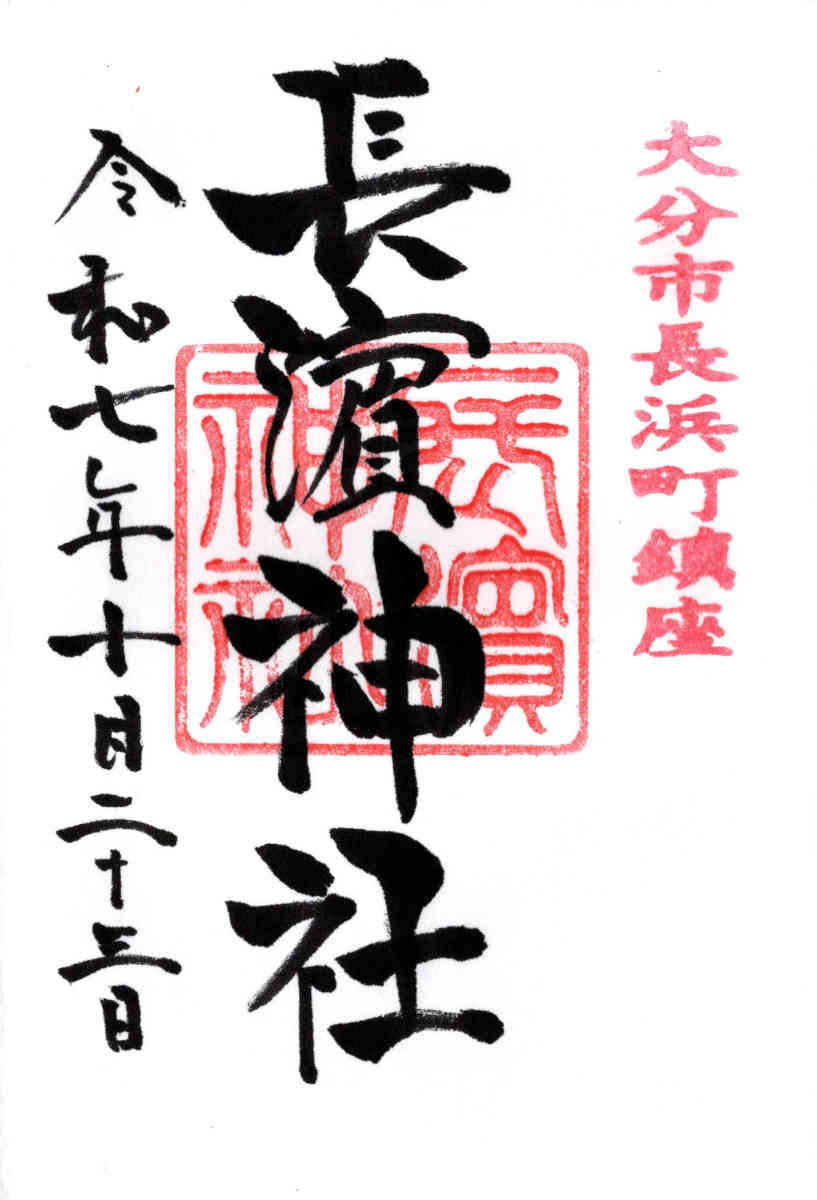 大分市長浜町鎮座
長濵神社
長濱神社
令和七年十月二十三日